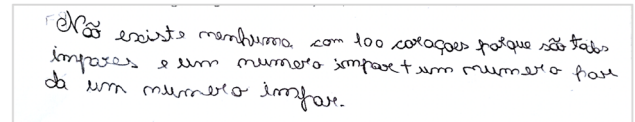 Não existe nenhuma com 100 corações porque são todos
impares e um numero impar + um numero par
dá um numero impar.